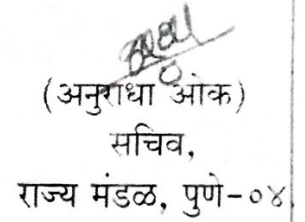 (अनुराधा ओक)
सचिव,
राज्य मंडळ, पुणे-०४